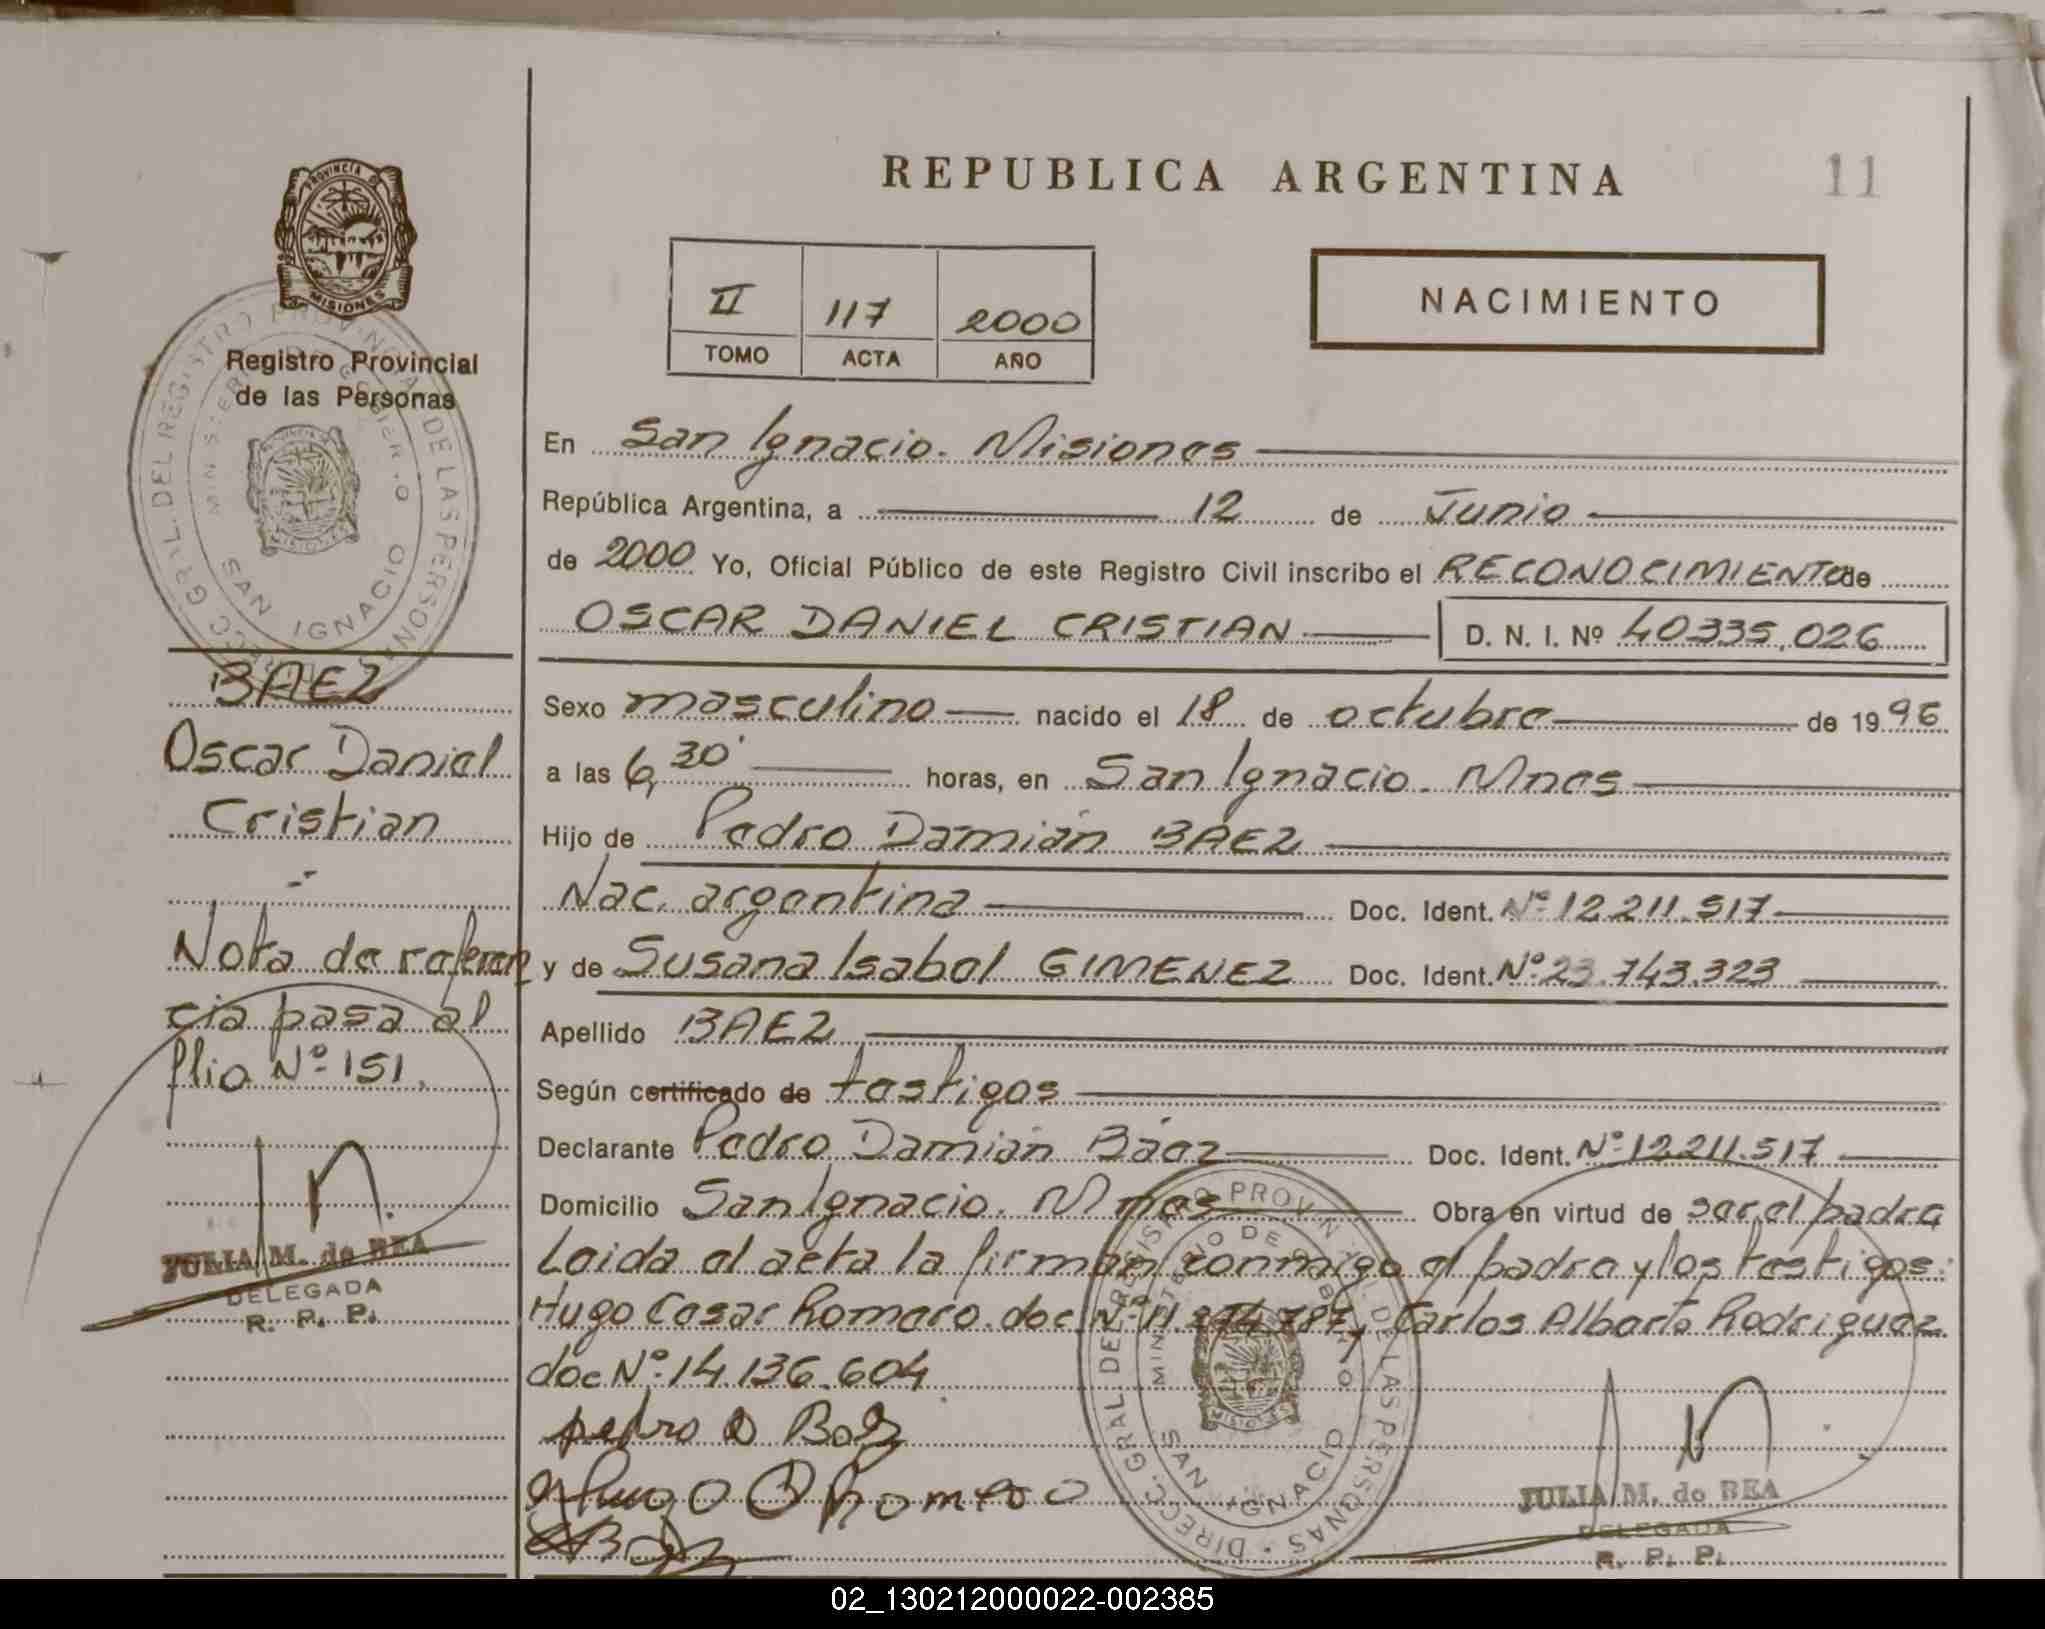 REPUBLICA ARGENTINA
11
PROVINCIA DE
MISIONES
Registro Provincial
de las Personas
II 117 2000
TOMO ACTA AÑO
NACIMIENTO
En San Ignacio. Misiones
República Argentina, a 12 de Junio
de 2000 Yo, Oficial Público de este Registro Civil inscribo el RECONOCIMIENTO de
OSCAR DANIEL CRISTIAN D. N. I. Nº 40335.026
Sexo masculino nacido el 18 de octubre de 1996
a las 6,30' horas, en San Ignacio. Mnes
Hijo de Pedro Damián BAEZ
Nac. argentina Doc. Ident. Nº 12.211.517
y de Susana Isabel GIMENEZ Doc. Ident. Nº 23.743.323
Apellido BAEZ
Según certificado de testigos
Declarante Pedro Damián Báez Doc. Ident. Nº 12.211.517
Domicilio San Ignacio. Mnes Obra en virtud de ser el padre
Leida el acta la firman conmigo el padre y los testigos:
Hugo Cesar Romero doc Nº 11.274.787, Carlos Alberto Rodriguez
doc Nº 14.136.604
pedro D Baez
Hugo C Romero
JULIA M. de BEA
DELEGADA
R. P. P.
DIRECC. GRAL. DEL REGISTRO PROVINCIAL DE LAS PERSONAS
MINISTERIO DE GOBIERNO
SAN IGNACIO
BAEZ
Oscar Daniel
Cristian
Nota de referen
cia pasa al
flio Nº 151.
JULIA M. de BEA
DELEGADA
R. P. P.
DIRECC. GRAL. DEL REGISTRO PROVINCIAL DE LAS PERSONAS
MINISTERIO DE GOBIERNO
SAN IGNACIO
02_130212000022-002385